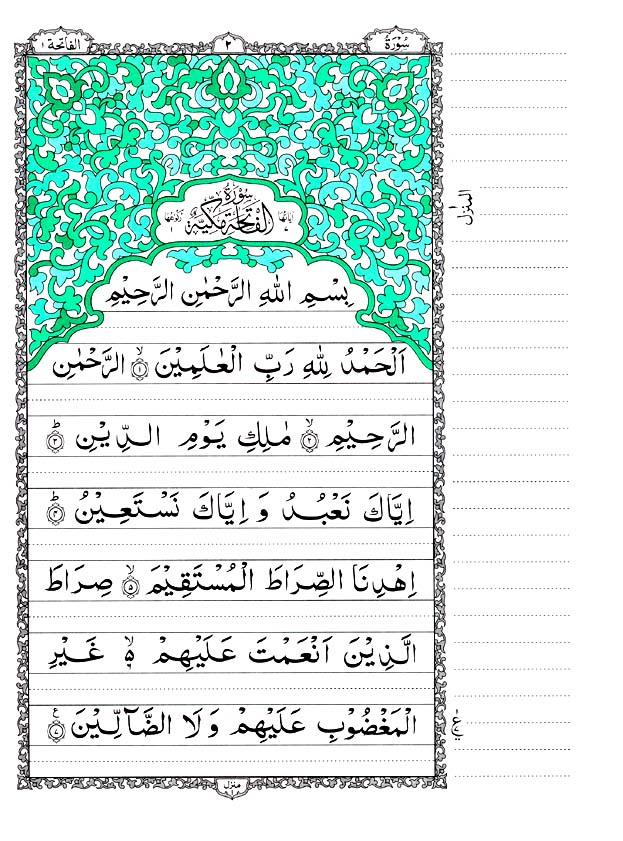 سُوْرَةُ ٢ الفَاتحة ١
سُوْرَةُ
اٰيَاتُهَا ٧ الْفَاتِحَةِ مَكِّيَّةٌ رُكُوْعُهَا ١
بِسْمِ اللّٰهِ الرَّحْمٰنِ الرَّحِيْمِ
اَلْحَمْدُ لِلّٰهِ رَبِّ الْعٰلَمِيْنَ ۙ﴿۱﴾ الرَّحْمٰنِ
الرَّحِيْمِ ۙ﴿۲﴾ مٰلِكِ يَوْمِ الدِّيْنِ ؕ﴿۳﴾
اِيَّاكَ نَعْبُدُ وَ اِيَّاكَ نَسْتَعِيْنُ ؕ﴿۴﴾
اِهْدِنَا الصِّرَاطَ الْمُسْتَقِيْمَ ۙ﴿۵﴾ صِرَاطَ
الَّذِيْنَ اَنْعَمْتَ عَلَيْهِمْ ۙ۬ غَيْرِ
الْمَغْضُوْبِ عَلَيْهِمْ وَ لَا الضَّآلِّيْنَ ﴿۷﴾ ع
منزل ١
المنزل
ع